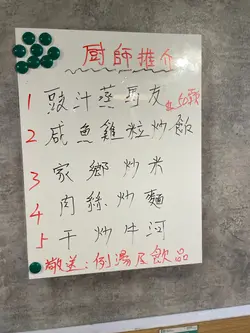 厨師推介
1 豉汁蒸
2 咸魚雞粒炒飯
3 家鄉炒米
4 肉絲炒麵
5 干炒牛河
敬送:例湯及飲品